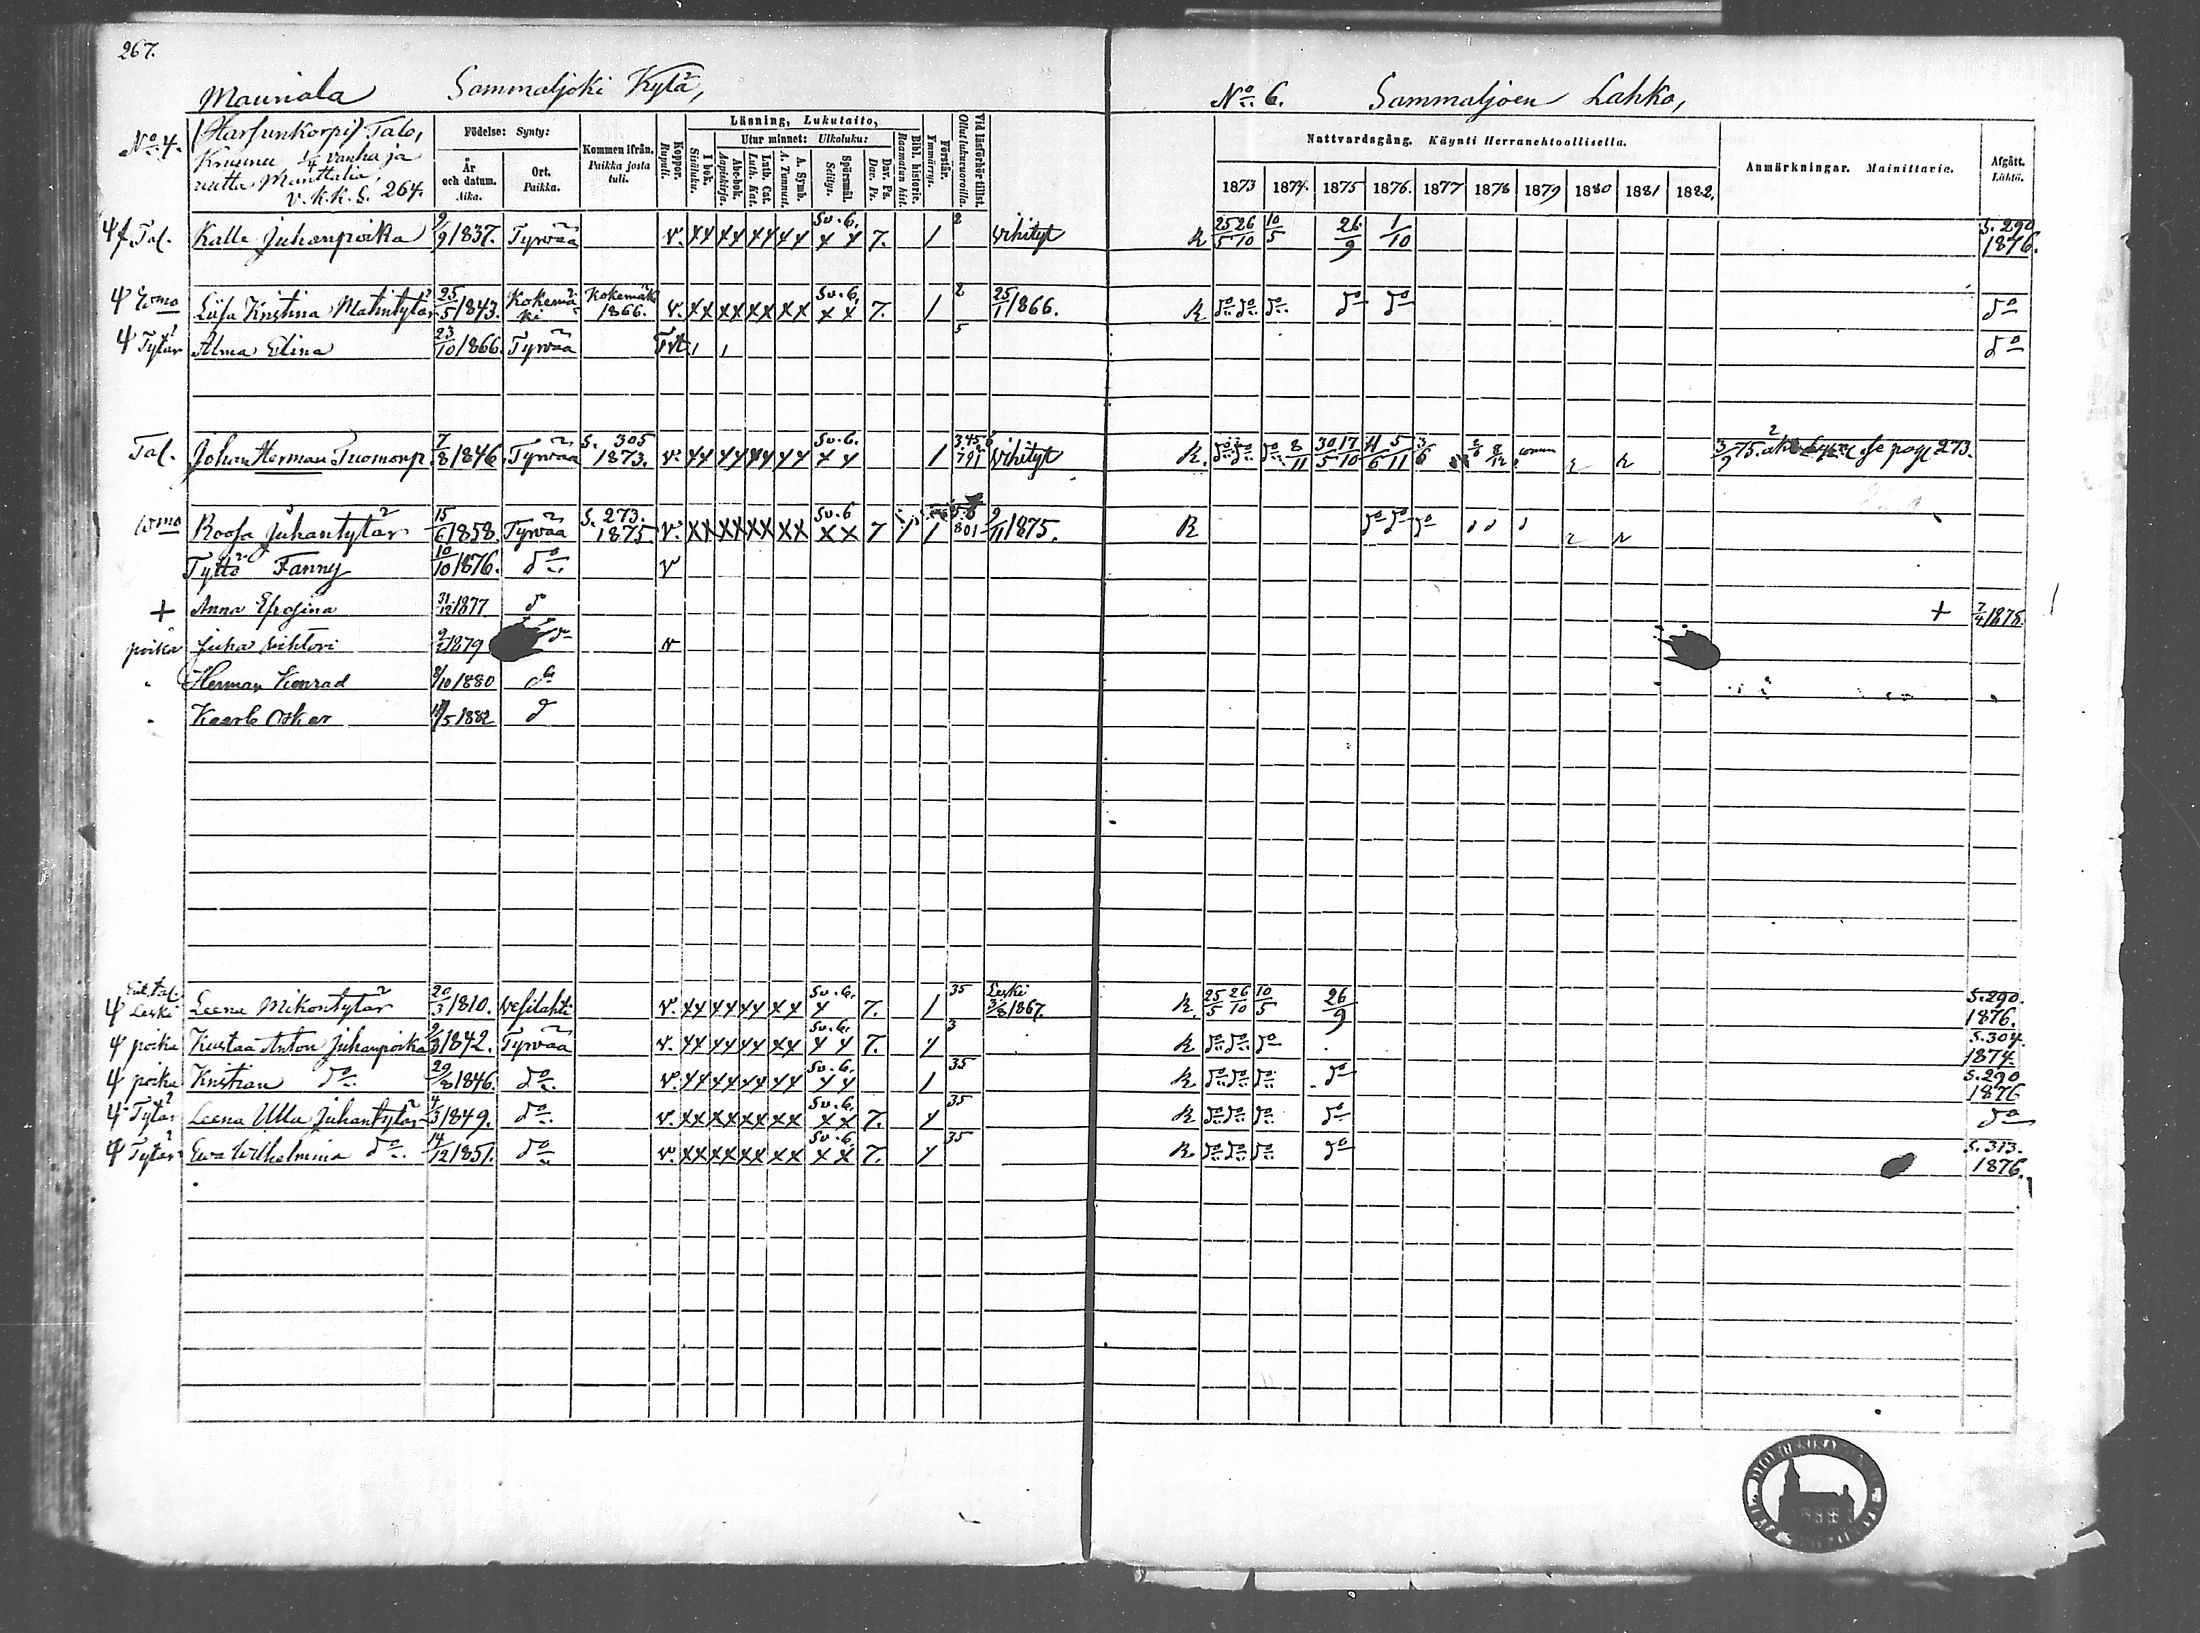 267.
Mauriala Sammaljoki Kylä, No 6. Sammaljoen Lahko,
No 4. (Harsunkorpi) Talo,
Kruunu 1/4 vanha ja
uutta Manttalia,
v. k. k. S. 264.
Födelse: Synty:
År och datum. Aika.
Ort. Paikka.
Kommen ifrån. Paikka josta tuli.
Koppor. Rupuli.
Läsning, Lukutaito,
I bok. Sisäluku.
Utur minnet: Ulkoluku:
Abc-bok. Aapiskirja.
Luth. Cat. Luth. Kat.
A. Symb. A. Tunnust.
Spörsmål. Selitys.
Dav. Ps. Dav. Ps.
Bibl. historie. Raamatun hist.
Förstår. Ymmärrys.
Vid läsförhör tillst. Ollut lukuvuoroilla.
Nattvardsgång. Käynti Herranehtoollisella.
1873 1874. 1875 1876. 1877 1878 1879 1880 1881 1882.
Anmärkningar. Mainittavia.
Afgått. Lähtö.
Tal. Kalle Juhanpoika 9/9 1837. Tyrvää v. xx xx xx xx Sv. 6. x x 7. 1 2 vihityt R 25/5 26/10 10/5 26/9 1/10 S. 290 1876.
Emo Liisa Kristina Matintytär 25/5 1843. Kokemäki Kokemäki 1866. v. xx xx xx xx Sv. 6. x x 7. 1 2 25/1 1866. R do do do do do do
Tytär Alma Elina 23/10 1866. Tyrvää 5 do
Tal. Johan Herman Tuomanp. 7/8 1846. Tyrvää S. 305 1873. v. xx xx xx xx Sv. 6. x x 1 vihityt R. do do do 8/11 30/5 17/10 4/6 5/11 3/6 273.
Emo Roosa Juhantytär 15/6 1858. Tyrvää S. 273. 1875 v. xx xx xx xx Sv. 6 x x 7 1 1 801 9/11 1875. R do do do
Tyttö Fanny 10/10 1876. do v
+ Anna Efrosina 31/12 1877 do + 7/4 1878.
poika Juha Vihtori 9/2 1879 do v
Herman Konrad 8/10 1880 do
Kaarle Oskar /5 1882 do
Leski Leena Mikontytär 20/3 1810. Vesilahti v. xx xx xx xx Sv. 6. x 7. 1 35 Leski 3/8 1867. R. 25/5 26/10 10/5 26/9 S. 290. 1876.
poika Kustaa Anton Juhanpoika 9/3 1842. Tyrvää v. xx xx xx xx Sv. 6. x x 7. x 3 R do do do S. 304. 1874.
poika Kristian do 29/8 1846. do v. xx xx xx xx Sv. 6. x x 1 35 R do do do do S. 290 1876
Tytär Leena Ulla Juhantytär 4/3 1849. do v. xx xx xx xx Sv. 6. x x 7. x 35 R do do do do do
Tytär Eva Wilhelmina do 14/12 1851. do v. xx xx xx xx Sv. 6. x x 7. x 35 R. do do do do S. 313. 1876.